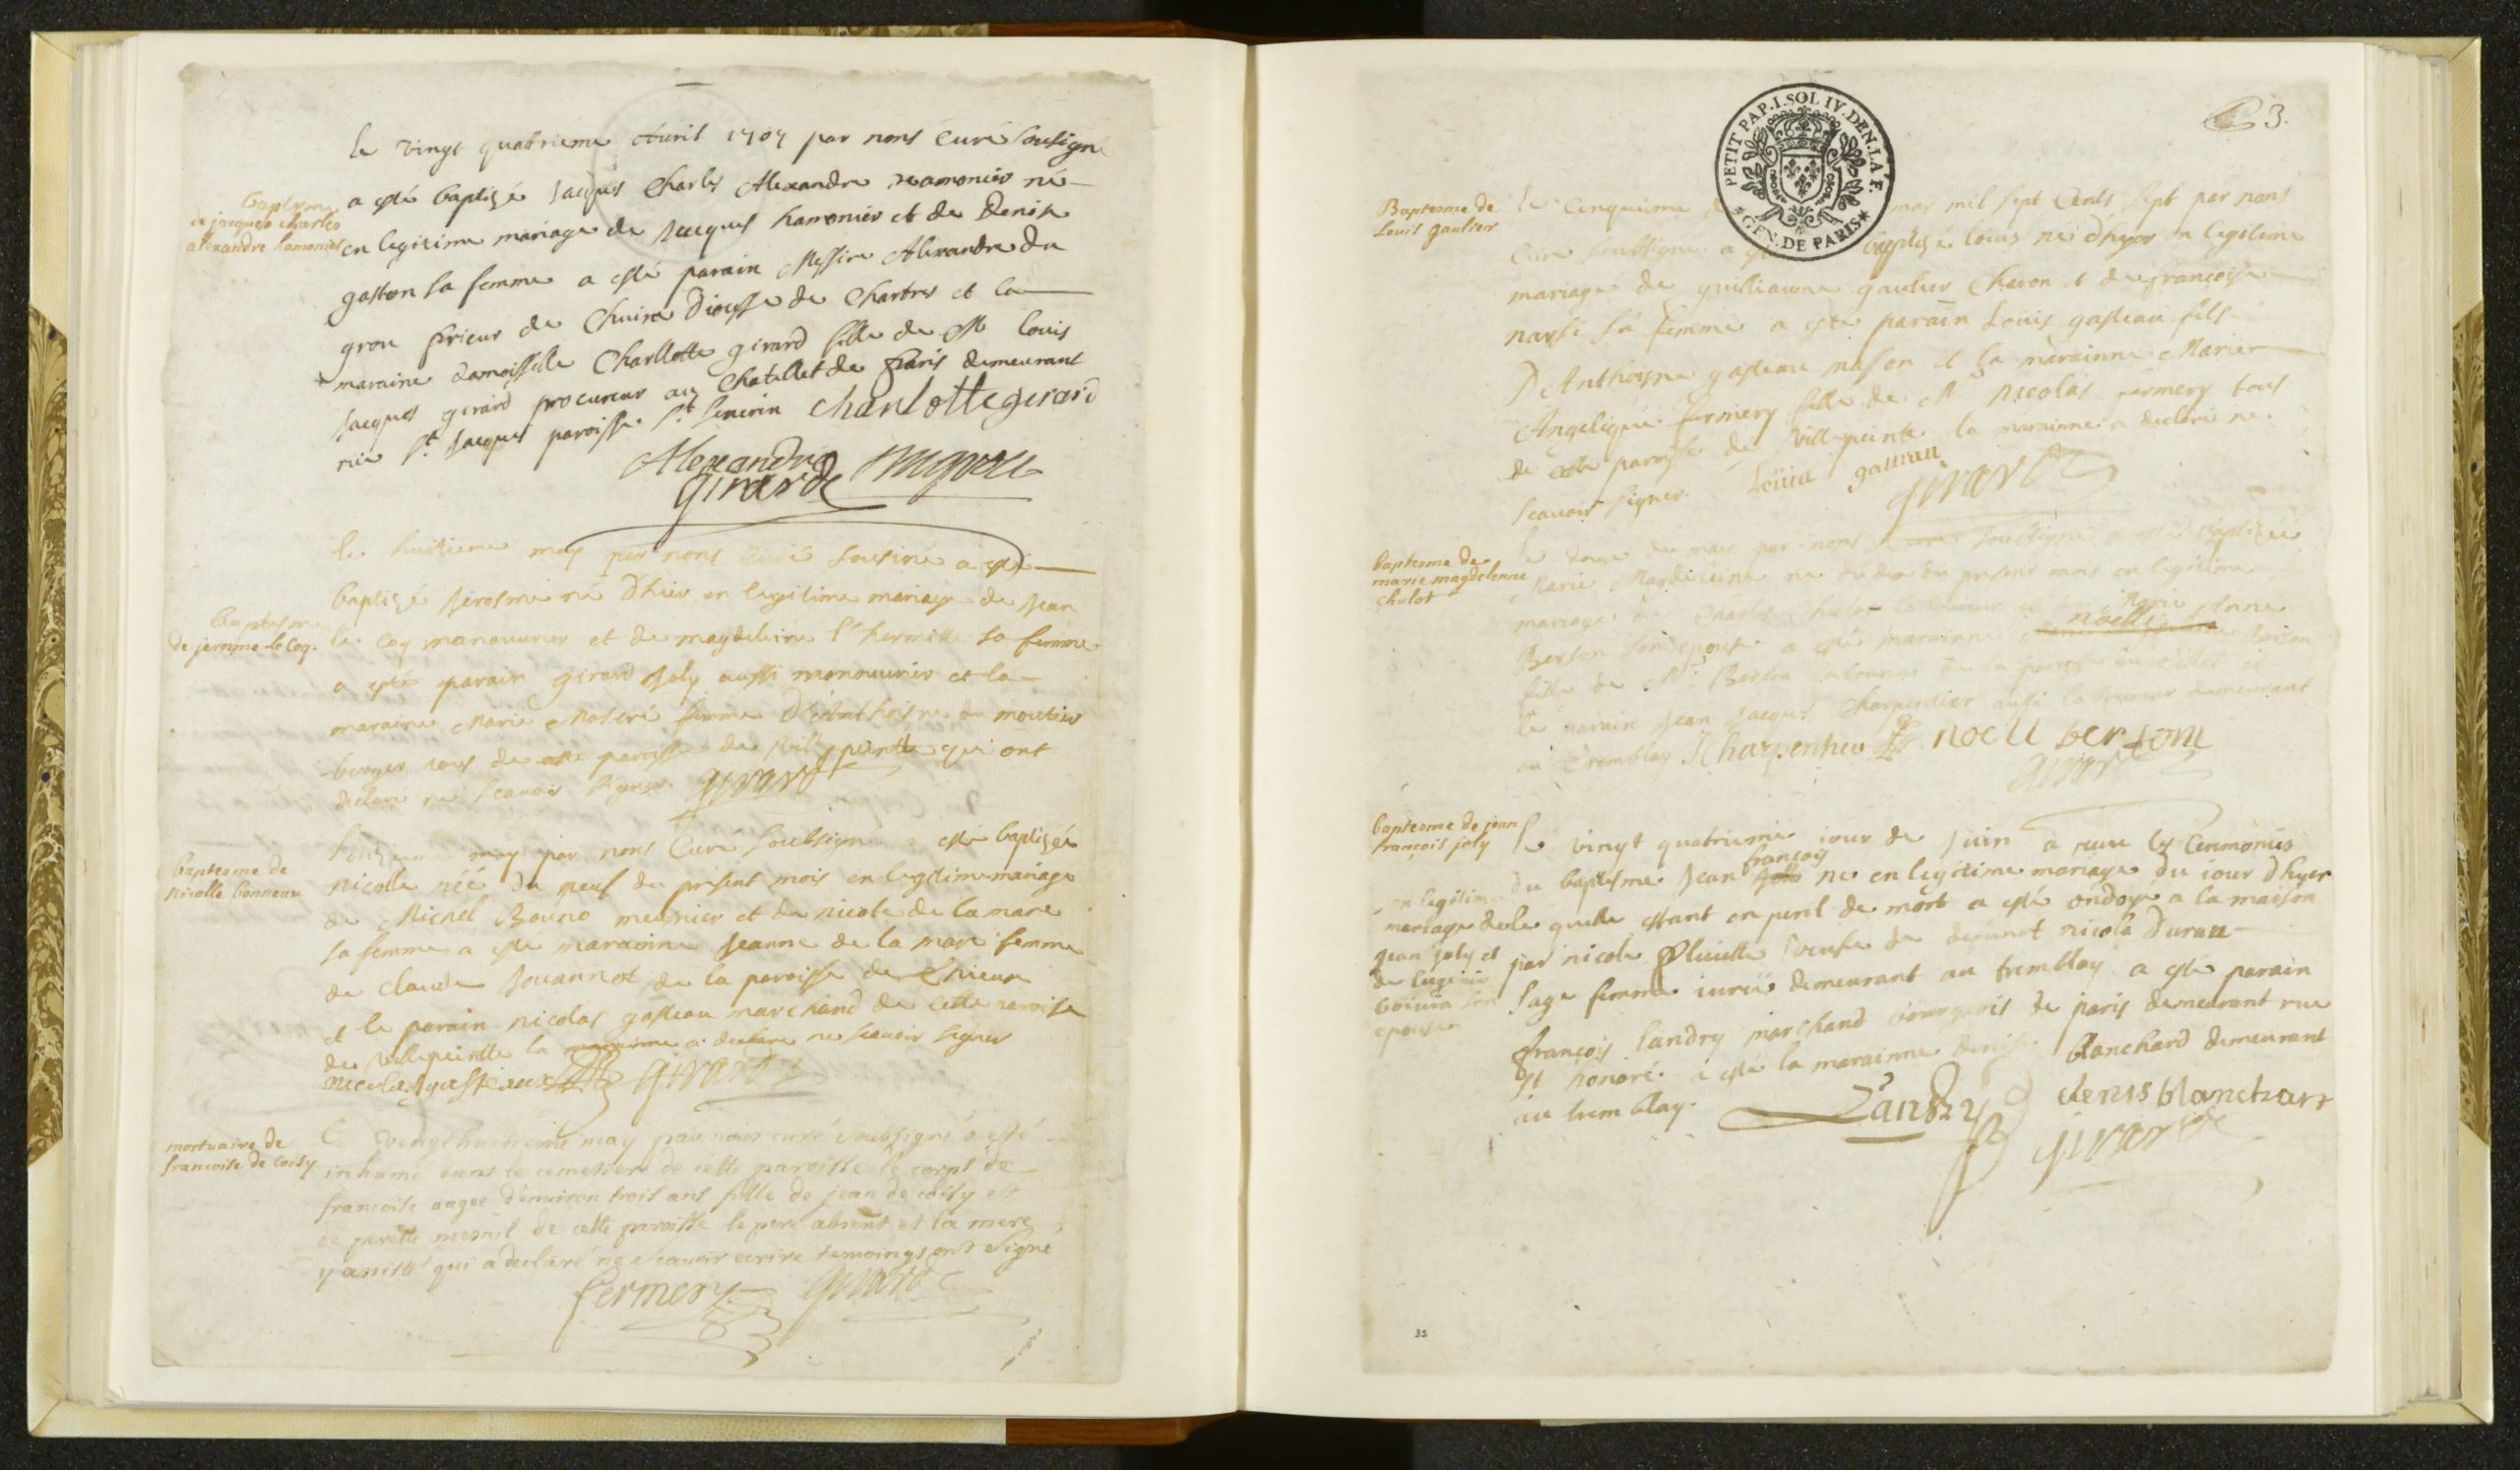 le vingt quatrieme Auril 1707 par nous curé sousigne
Baptesme
de jacques charles
alexandre hamonier
a esté baptizé Jacques Charles Alexandre hamonier né
en legitime mariage de Jacques hamonier et de Denise
gaston sa femme a esté parain Messire Alexandre Du
grou prieur de Chuisne Diocesse de Chartres et la
maraine damoisselle Charllotte girard fille de Mr louis
Jacques girard procureur au Chatellet de Paris demeurant
rüe St Jacques paroisse St Seuerin charlotte gerard
Alexandre
Girard
le huitieme may par nous Curé sousiné a esté
Baptesme
de jerosme le Coq.
baptizé Jerosme né d'hier en legitime mariage de Jean
le Coq manouurier et de magdeleine l'hermitte sa femme
a esté parain girard Joly aussi manouurier et la
maraine Marie femme D'Anthoisne du moutier
berger tous de cette paroisse de villepeinte qui ont
declaré ne scauoir signer. girard
Baptesme de
nicolle bonneau
may par nous Curé soubsigné a esté baptizée
nicolle néé du neuf du present mois en legitime mariage
de Michel Bouno meunier et de nicole de la mare
sa femme a esté maraine Jeanne de la mare femme
de claude Jouannot de la paroisse de
et le parain nicolas gasteau marchand de cette paroisse
de villepeintte la maraine a declaré ne scauoir signer
nicolas gasteau girard
mortuaire de
francoise de coisy
Le vingt huitieme may par nous curé soubsigné a esté
inhumé dans le cemetiere de cette paroisse le corps de
francoise aagee d'enuiron trois ans fille de jean de coisy et
de perette mesnil de cette paroisse le pere absent et la mere
y assisté qui a declaré ne scauoir ecrire temoings ont signé
fermery girard
PETIT PAP. I. SOL IV. DEN. LA F.
GEN. DE PARIS
3.
Baptesme de
Louis gaultier
le cinquieme mil sept cents sept par nous
Curé soubsigné a esté baptizé louis né d'hyer en legitime
mariage de guilliaume gaultier Charon et de francoise
narsi sa femme a esté parain Louis gasteau fils
D'Anthoisne gasteau mason et la marainne Marie
Angelique fermery fille de Mr nicolas fermery tous
de cette paroisse de villepeinte la marainne a declaré ne
scauoir signer. Loüis gasteau
girard
baptesme de
marie magdelenne
chulot
le douze de par nous Curé soubsigné a esté baptizée
Marie Magdeleine née du du present mois en legitime
mariage de Charles laboureur et de Marie Anne
Berson son epouse a esté marainne noelle Berson
fille de Mr Berson laboureur de la paroisse de et
le parain Jean Jacques Charpentier aussi laboureur demeurant
au Tremblay JCharpentier noell berson
girard
baptesme de jean
françois joly
le vingt quatrieme iour de Juin a receu les Ceremonies
du baptesme Jean françois né en legitime mariage du iour d'hyer
en legitime
mariage de
Jean joly et
de
son
epouse
lequelle estant en peril de mort a esté ondoyé a la maison
par nicole veufue de defunct nicolas Duran
sage femme iurée demeurant au tremblay a esté parain
François landry marchand bourgeois de paris demeurant rue
St honoré a esté la marainne denise blanchard demeurant
au tremblay. Landry denis blanchart
girard
35